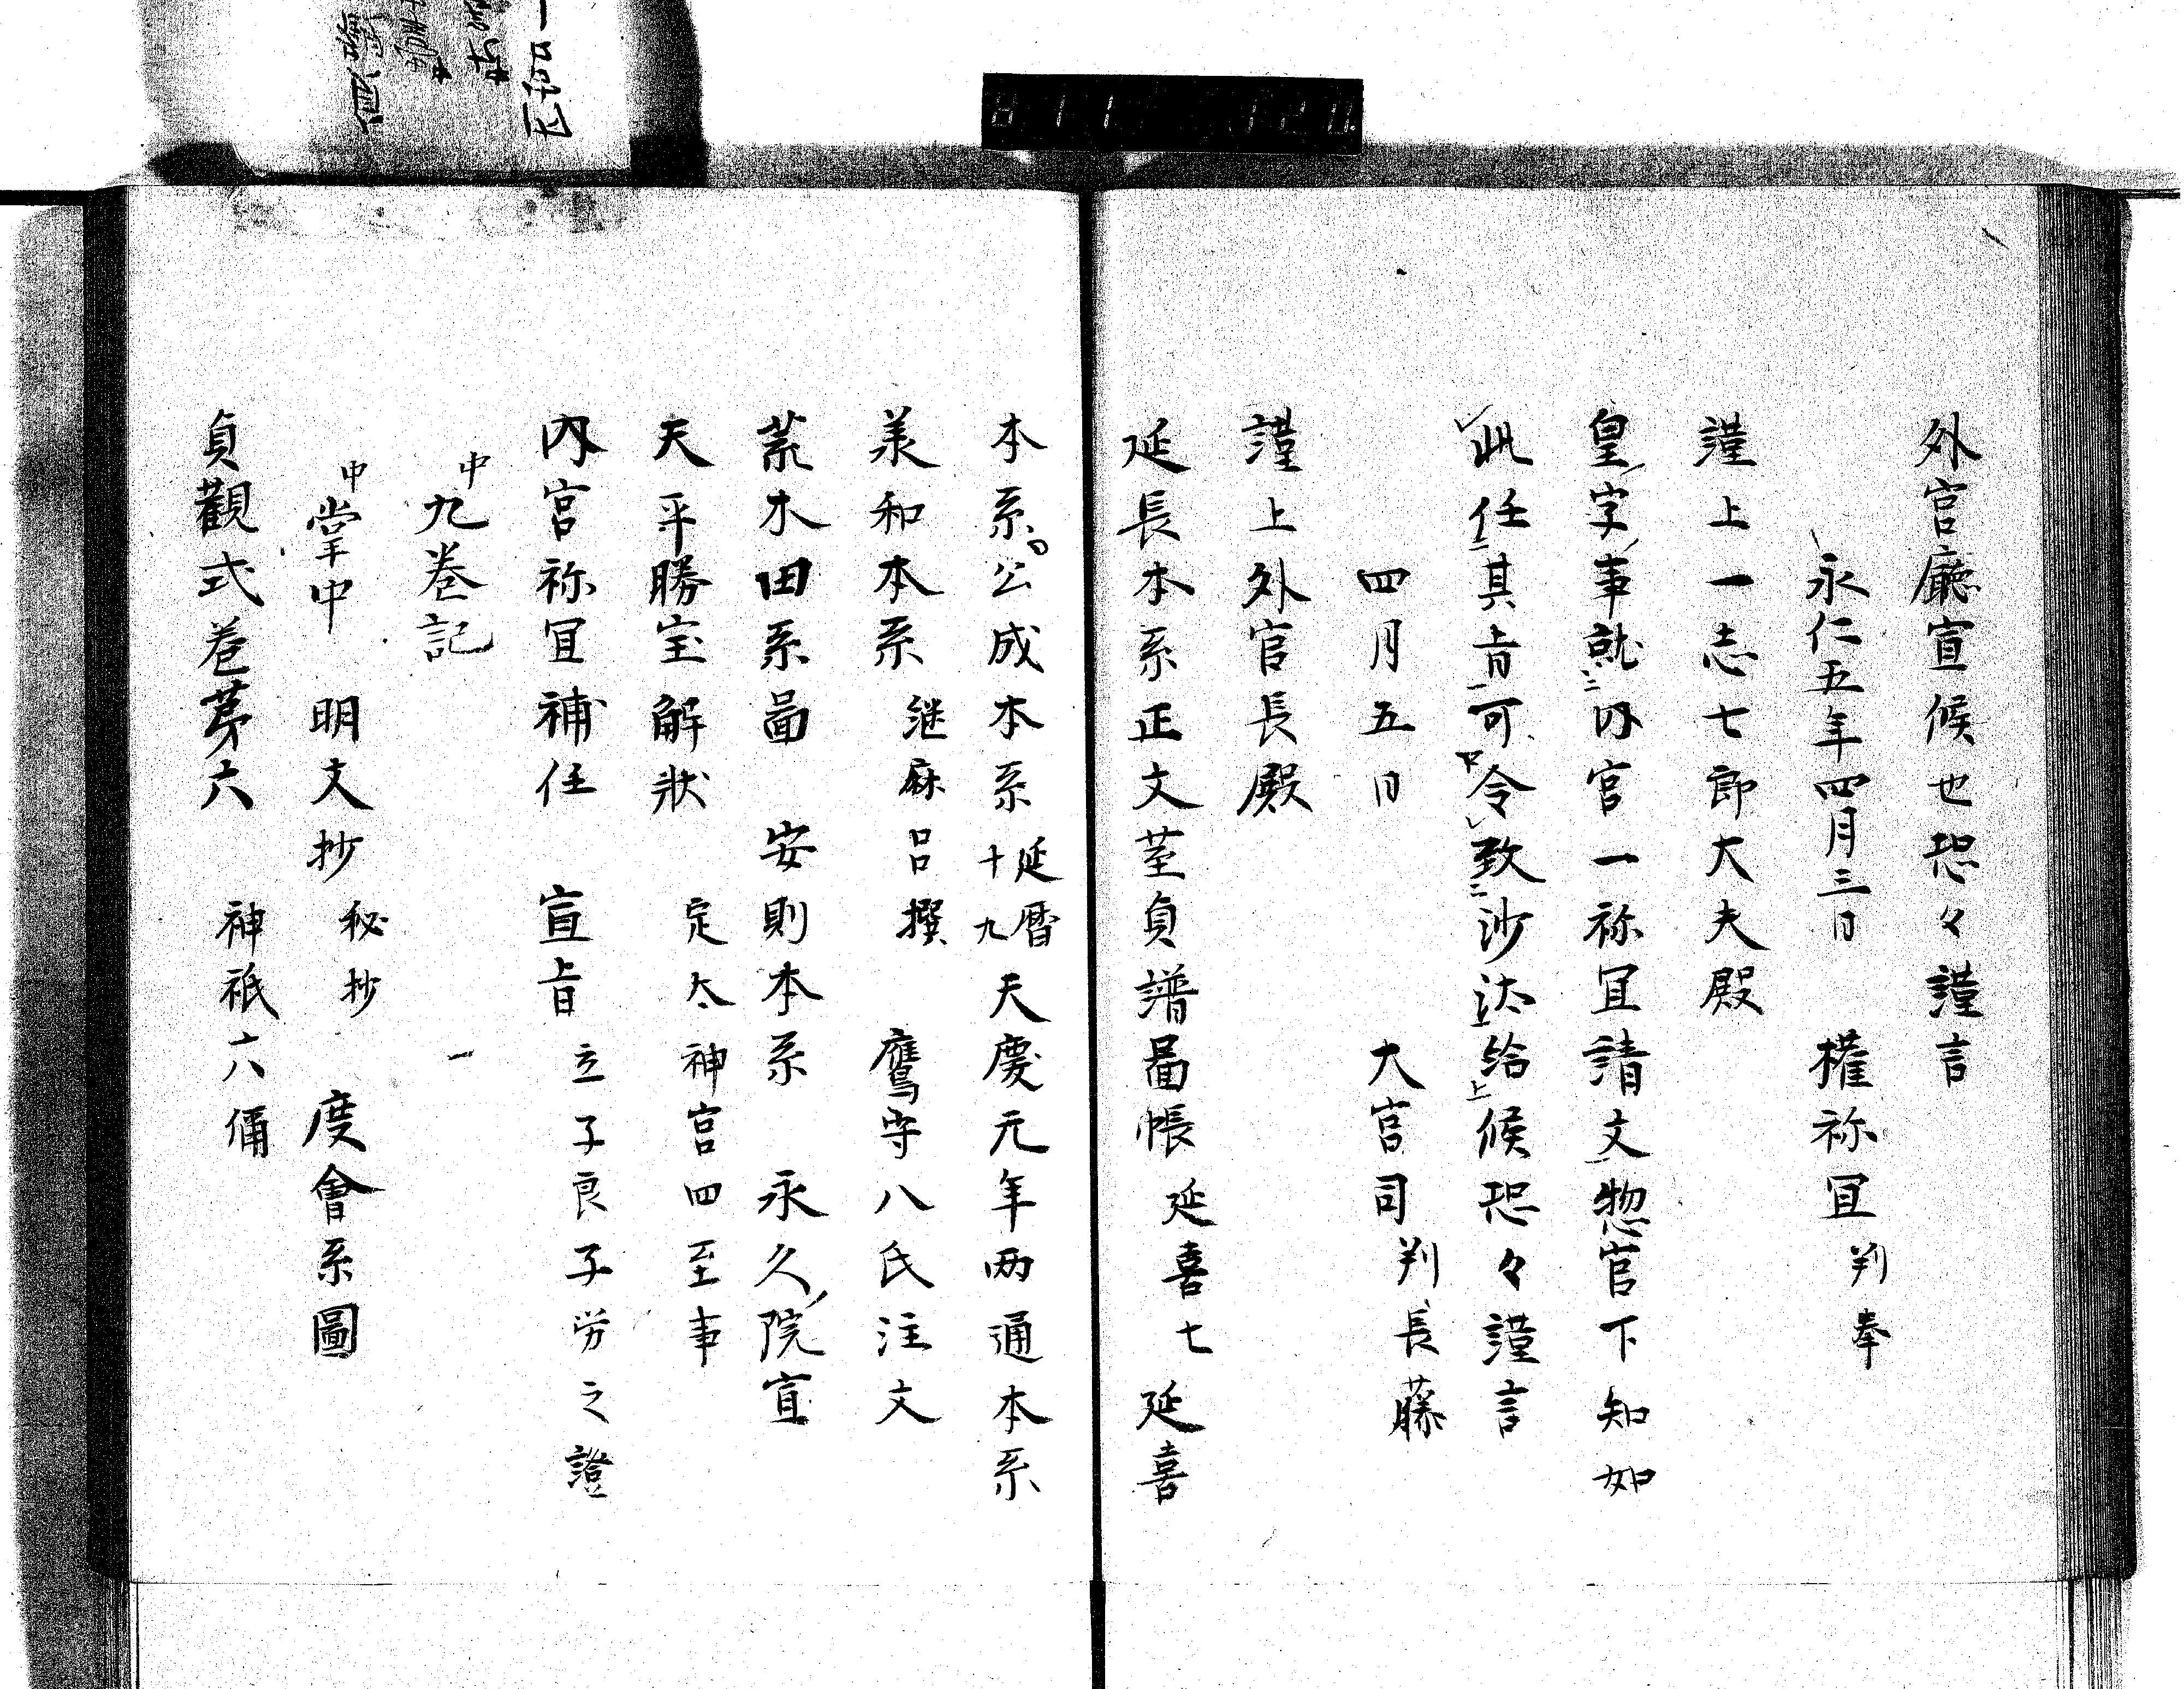 外宮廳宣候也恐々謹言
永仁五年四月三日　権祢冝判奉
謹上一志七郎大夫殿
皇字事就内宮一祢冝請文惣官下知如
此任其旨可令致沙汰給候恐々謹言
四月五日　大宮司判長藤
謹上外宮長殿
延長本系正文茎貞譜啚帳延喜七延喜
本系公成本系延暦十九天慶元年两通本系
美和本系継麻呂撰　鷹守八氏注文
荒木田系啚　安則本系　永久院宣
天平勝宝解状　定太神宮四至事
内宮祢冝補任　宣旨立子良子労之證
中九巻記
中掌中　明文抄秘抄　度會系圖
貞觀式巻苐六　神祇六俻